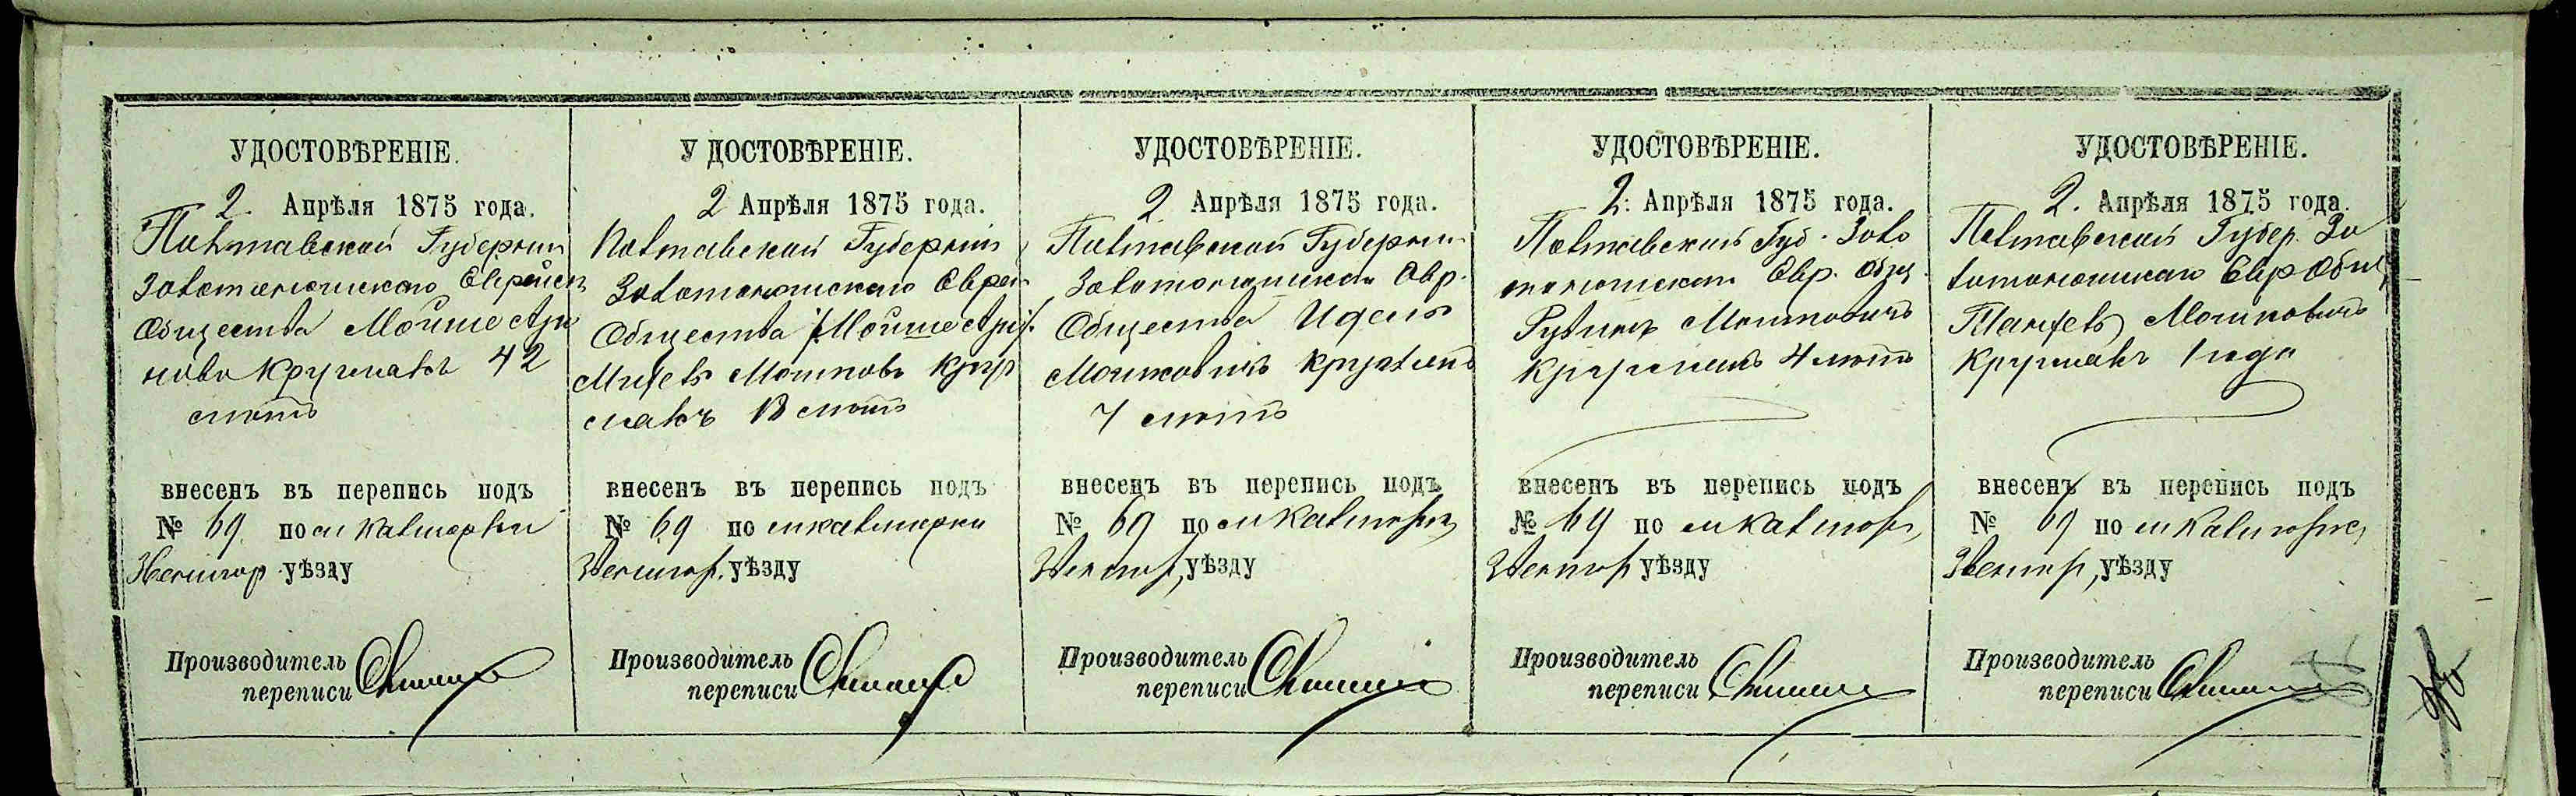 УДОСТОВѢРЕНІЕ.
2. Апрѣля 1875 года.
Полтавской Губерніи
Золотоношскаго Еврейск
Общества Мойше Аро
ново Кругмакъ 42
лѣтъ
внесенъ въ перепись подъ
№ 69. по м Кальморки
Звенигор уѣзду
Производитель
переписи
УДОСТОВѢРЕНІЕ.
2 Апрѣля 1875 года.
Полтавской Губерніи
Золотоношскаго Еврей
Общества /Мойше Ар/.
Мошков
лѣтъ
внесенъ въ перепись подъ
№ 69 по м Кальморки
Звенигор. уѣзду
Производитель
переписи
УДОСТОВѢРЕНІЕ.
2. Апрѣля 1875 года.
Полтавской Губерніи
Золотоношскаго Евр.
Общества Идель
Мошковичъ
7 лѣтъ
внесенъ въ перепись подъ
№ 69 по м Кальмор
Звенигор, уѣзду
Производитель
переписи
УДОСТОВѢРЕНІЕ.
2. Апрѣля 1875 года.
Полтавской Губ. Золо
тоношскаго Евр. Общ.
Мошковичъ
4 лѣтъ
внесенъ въ перепись подъ
№ 69 по м Кальмор,
Звенигор уѣзду
Производитель
переписи
УДОСТОВѢРЕНІЕ.
2. Апрѣля 1875 года.
Полтавской Губер. Зо
лотоношскаго Евр Общ
Мошковичъ
Кругмакъ 1 года
внесенъ въ перепись подъ
№ 69 по м Кальмор,
Звенигор, уѣзду
Производитель
переписи